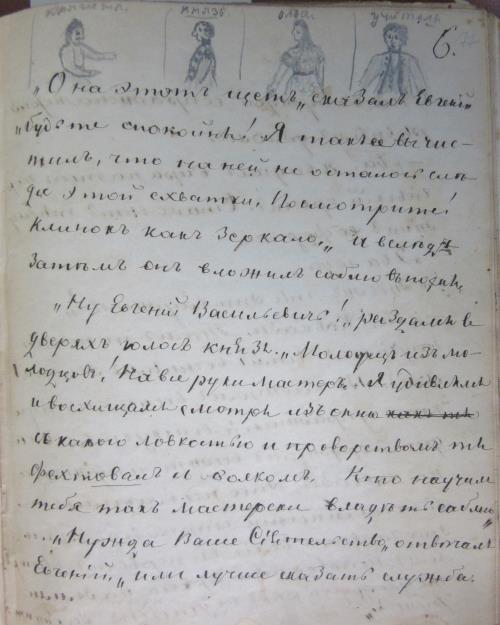 княгиня. князь. Ольга. учитель
6.
„О на этотъ щетъ„ сказалъ Евгеній
„будьте спокойны! Я такъ ее вычис-
тилъ, что на ней не осталось слѣ-
да этой схватки. Посмотрите!
Клинокъ какъ зеркало.„ И вслѣдъ
затѣмъ онъ вложилъ саблю въ ножны.
„Ну Евгеній Васильевичъ!„ раздался въ
дверяхъ голосъ князя. „Молодецъ изъ мо-
лодцовъ! На все руки мастеръ. Я удивлялся
и восхищался смотря изъ окна
съ какою ловкостью и проворствомъ ты
фехтовалъ съ волкомъ. Кто научилъ
тебя такъ мастерски владѣть саблею„
„Нужда Ваше Сіятельство„ отвѣчалъ
Евгеній, „или лучше сказать служба.